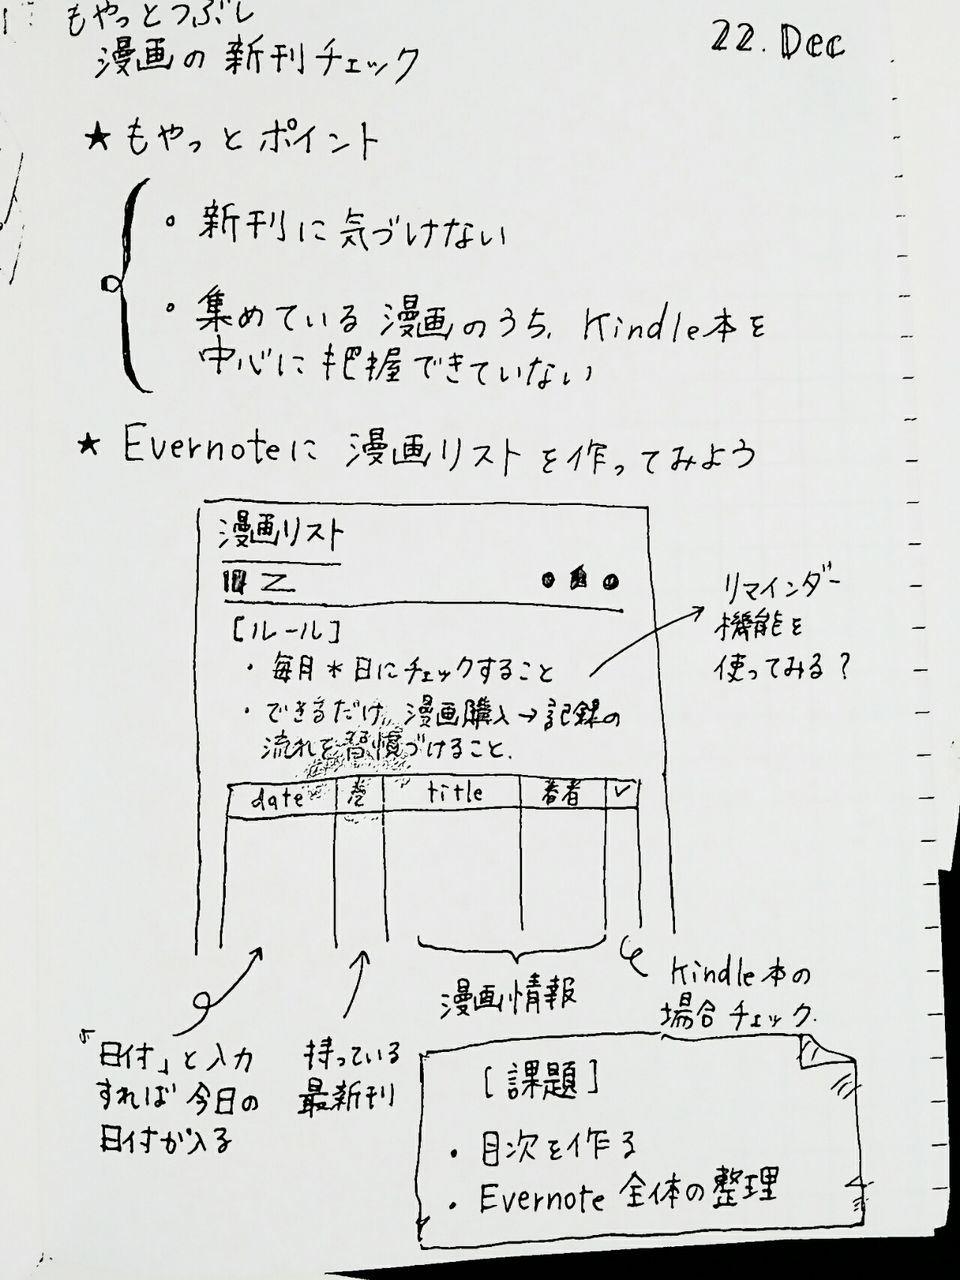 もやっとつぶし
漫画の新刊チェック
22. Dec
★ もやっとポイント
・新刊に気づけない
・集めている漫画のうち、Kindle本を
中心に把握できていない
★ Evernoteに漫画リストを作ってみよう
漫画リスト
[ルール]
・毎月*日にチェックすること
・できるだけ、漫画購入→記録の
流れを習慣づけること.
リマインダー
機能を
使ってみる?
date 巻 title 著者 ✓
漫画情報
Kindle本の
場合チェック.
「日付」と入力
すれば今日の
日付が入る
持っている
最新刊
[課題]
・目次を作る
・Evernote 全体の整理